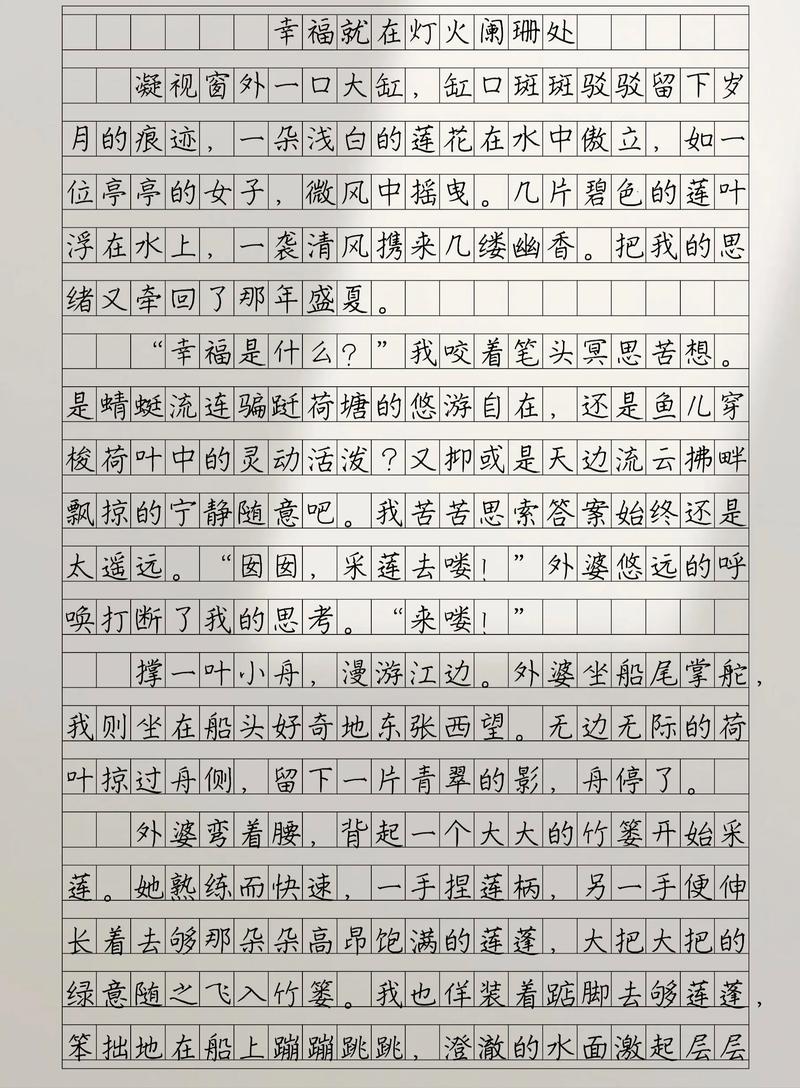 幸福就在灯火阑珊处
凝视窗外一口大缸，缸口斑斑驳驳留下岁
月的痕迹，一朵浅白的莲花在水中傲立，如一
位亭亭的女子，微风中摇曳。几片碧色的莲叶
浮在水上，一袭清风携来几缕幽香。把我的思
绪又牵回了那年盛夏。
“幸福是什么？”我咬着笔头冥思苦想。
是蜻蜓流连骗跹荷塘的悠游自在，还是鱼儿穿
梭荷叶中的灵动活泼？又抑或是天边流云拂畔
飘掠的宁静随意吧。我苦苦思索答案始终还是
太遥远。“囡囡，采莲去喽！”外婆悠远的呼
唤打断了我的思考。“来喽！”
撑一叶小舟，漫游江边。外婆坐船尾掌舵，
我则坐在船头好奇地东张西望。无边无际的荷
叶掠过舟侧，留下一片青翠的影，舟停了。
外婆弯着腰，背起一个大大的竹篓开始采
莲。她熟练而快速，一手捏莲柄，另一手便伸
长着去够那朵朵高昂饱满的莲蓬，大把大把的
绿意随之飞入竹篓。我也佯装着踮脚去够莲蓬，
笨拙地在船上蹦蹦跳跳，澄澈的水面激起层层